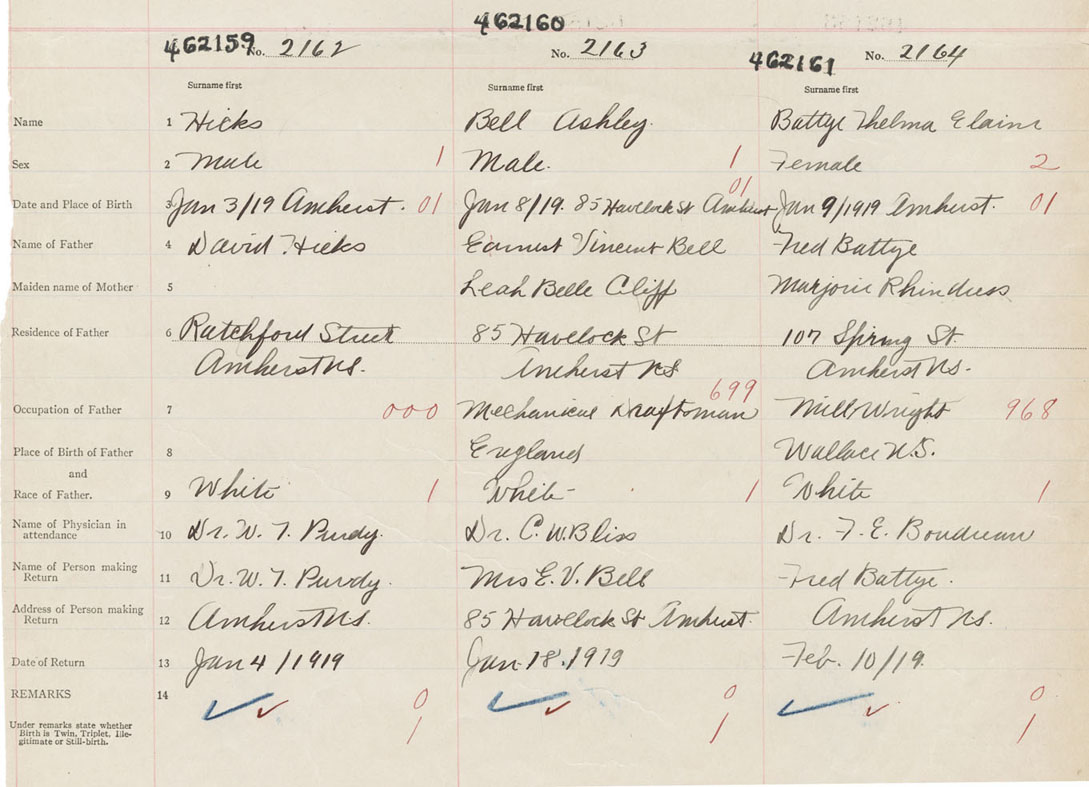 462160
462159 No. 2162 No. 2163 462161 No. 2164
Surname first Surname first Surname first
Name 1 Hicks Bell Ashley. Battye Thelma Elaine
Sex 2 Male 1 Male. 1 Female 2
01
Date and Place of Birth 3 Jan 3/19 Amherst. 01 Jan 8/19. 85 Havelock St Amherst Jan 9/1919 Amherst. 01
Name of Father 4 David Hicks Earnest Vincent Bell Fred Battye
Maiden name of Mother 5 Leah Belle Cliff Marjorie Rhindress
Residence of Father 6 Ratchford Street 85 Havelock St 107 Spring St.
Amherst NS. Amherst NS Amherst NS.
699
Occupation of Father 7 000 Mechanical Draftsman Mill Wright 968
Place of Birth of Father 8 England Wallace N.S.
and
Race of Father. 9 White 1 White 1 White 1
Name of Physician in
attendance 10 Dr. W. T. Purdy. Dr. C. W. Bliss Dr. F. E. Boudreau
Name of Person making
Return 11 Dr. W. T. Purdy. Mrs E. V. Bell Fred Battye.
Address of Person making
Return 12 Amherst NS. 85 Havelock St Amherst. Amherst NS.
Date of Return 13 Jan 4/1919 Jan. 18.1919 Feb. 10/19.
REMARKS 14 0 0 0
Under remarks state whether
Birth is Twin, Triplet, Ille-
gitimate or Still-birth. 1 1 1